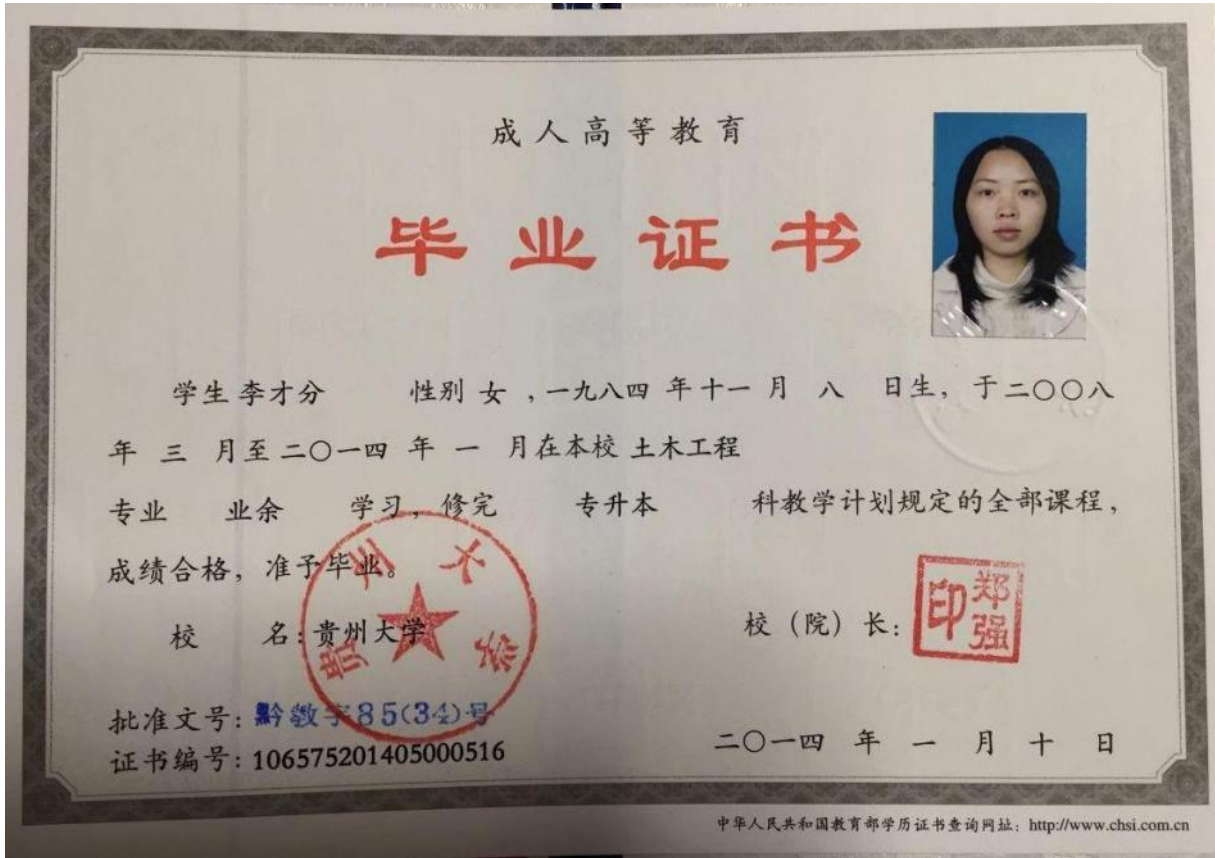 成人高等教育
毕业证书
学生 李才分 性别 女 ,一九八四 年十一 月 八 日生，于二〇〇八
年 三 月至二〇一四 年 一 月在本校 土木工程
专业 业余 学习，修完 专升本 科教学计划规定的全部课程，
成绩合格，准予毕业。
校 名:贵州大学
贵州大学
校（院）长:
郑强印
批准文号: 黔教字85(34)号
证书编号: 106575201405000516
二〇一四 年 一 月 十 日
中华人民共和国教育部学历证书查询网址: http://www.chsi.com.cn